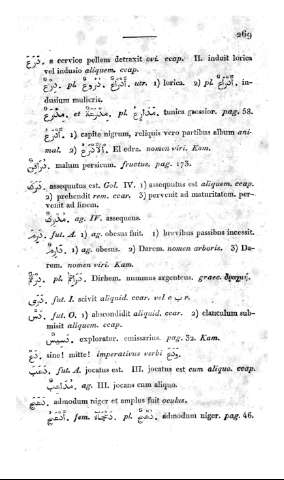 269
دَرَعَ. a cervice pellem detraxit ovi. ccap. II. induit lorica
vel indusio aliquem. ccap.
دِرْعٌ. pl. دُرُوعٌ. أَدْرُعٌ. utr. 1) lorica. 2) pl. أَدْرَاعٌ. in-
dusium mulieris.
مِدْرَعٌ. et مِدْرَعَةٌ. pl. مَدَارِعُ. tunica crassior. pag. 58.
أَدْرَعُ. 1) capite nigrum, reliquis vero partibus album ani-
mal. 2) أَلْأَدْرَعُ. El edra. nomen viri. Kam.
دُرَاقِنٌ. malum persicum. fructus. pag. 173.
دَرَكَ. assequutus est. Gol. IV. 1) assequutus est aliquem. ccap.
2) prehendit rem. ccar. 3) pervenit ad maturitatem. per-
venit ad finem.
مُدْرِكٌ. ag. IV. assequens.
دَرِمَ. fut. A. 1) ag. obesus fuit. 1) brevibus passibus incessit.
دَارِمٌ. 1) ag. obesus. 2) Darem. nomen arboris. 3) Da-
rem. nomen viri. Kam.
دِرْهَمٌ. pl. دَرَاهِمُ. Dirhem. nummus argenteus. graec. δραχμή.
دَرَى. fut. I. scivit aliquid. ccar. vel c. ب r.
دَسَّ. fut. O. 1) abscondidit aliquid. ccar. 2) clanculum sub-
misit aliquem. ccap.
دَسِيسٌ. explorator. emissarius. pag. 32. Kam.
دَعْ. sine! mitte! imperativus verbi وَدَعَ.
دَعَبَ. fut. A. jocatus est. III. jocatus est cum aliquo. ccap.
مُدَاعِبٌ. ag. III. jocans cum aliquo.
دَعِجَ. admodum niger et amplus fuit oculus.
أَدْعَجُ. fem. دَعْجَاءُ. pl. دُعْجٌ. admodum niger. pag. 46.